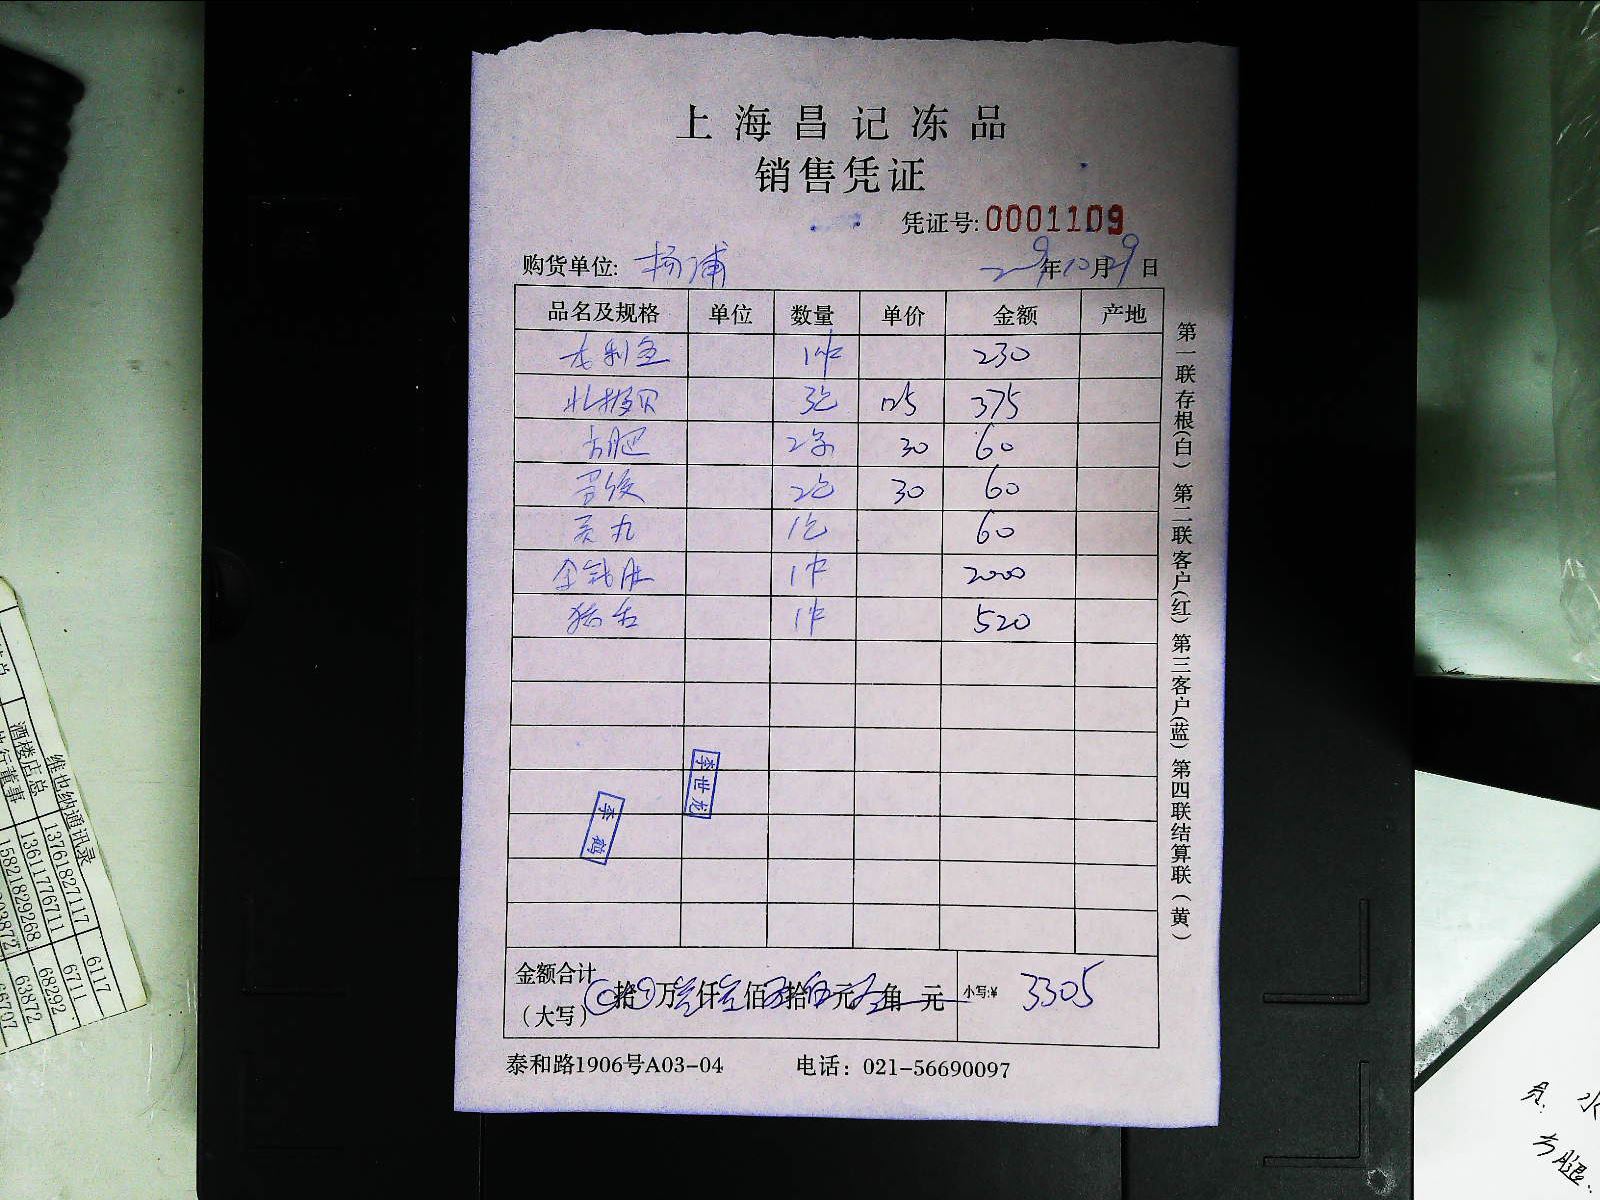 上海昌记冻品
销售凭证
凭证号:0001109
购货单位: 杨浦 年10月29日
品名及规格 单位 数量 单价 金额 产地
1件 230
北极贝 3包 125 375
方腿 2条 30 60
2包 30 60
贡丸 1包 60
金钱肚 1件 2000
猪舌 1件 520
李世龙
李鹤
金额合计(大写) 拾 万叁仟叁佰 拾伍元 角 元 小写:¥ 3305
泰和路1906号A03-04 电话：021-56690097
第一联存根(白) 第二联客户(红) 第三客户(蓝) 第四联结算联(黄)
维也纳通讯录
酒楼店总 13761827117 6117
执行董事 13617776711 6711
15821829268 68292
63872
方腿.